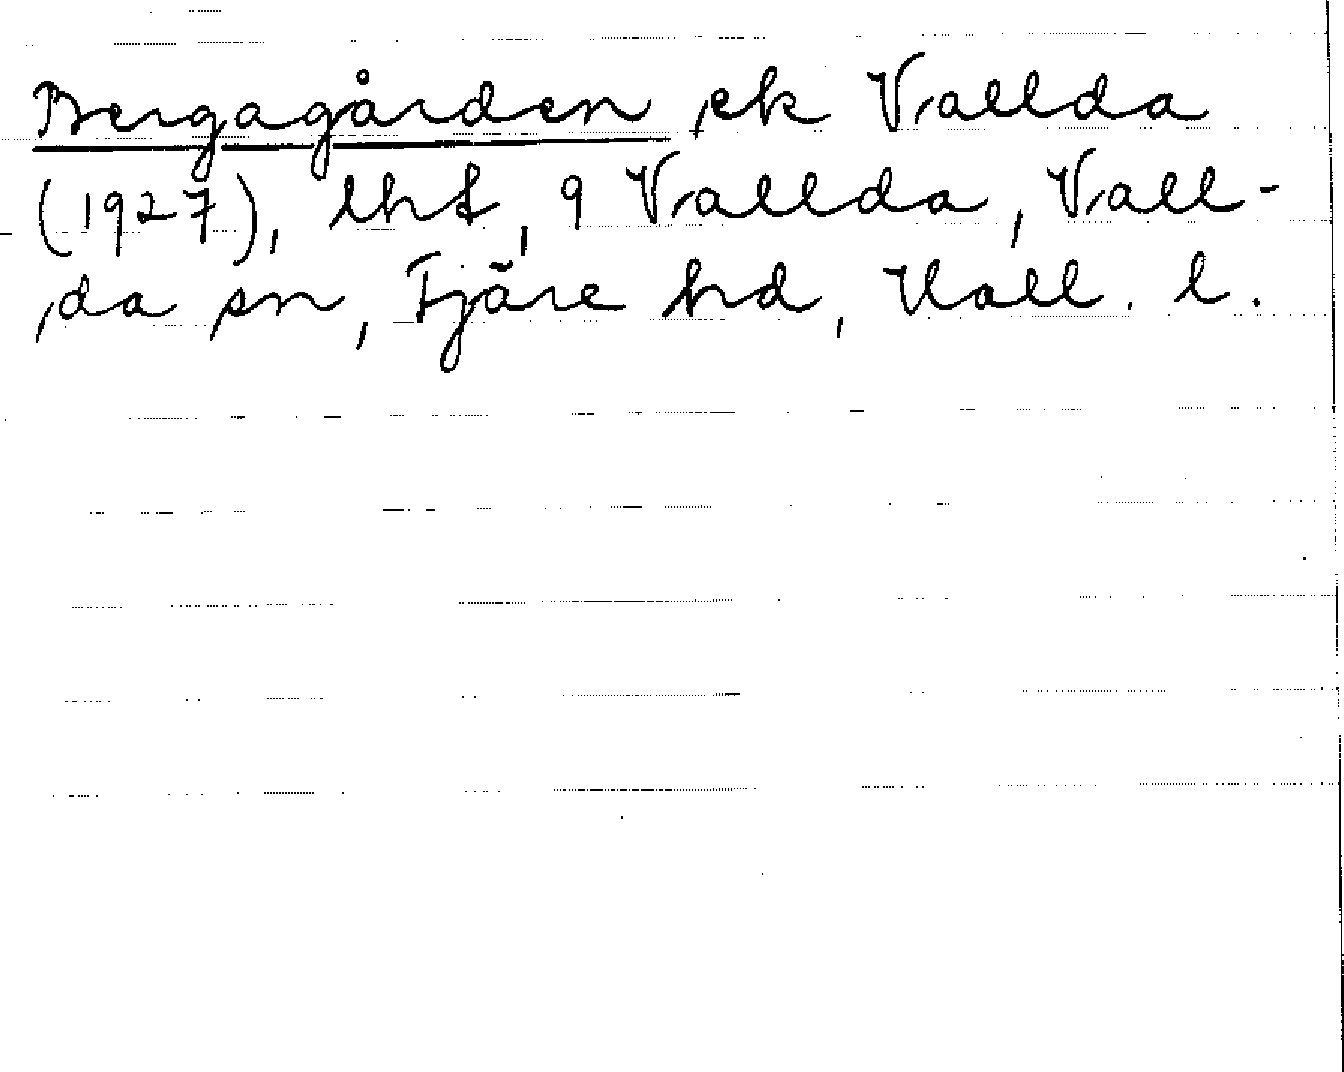 Bergagården ek Vallda
(1927), lht, 9 Vallda, Vall-
da sn, Fjäre hd, Hall. l.